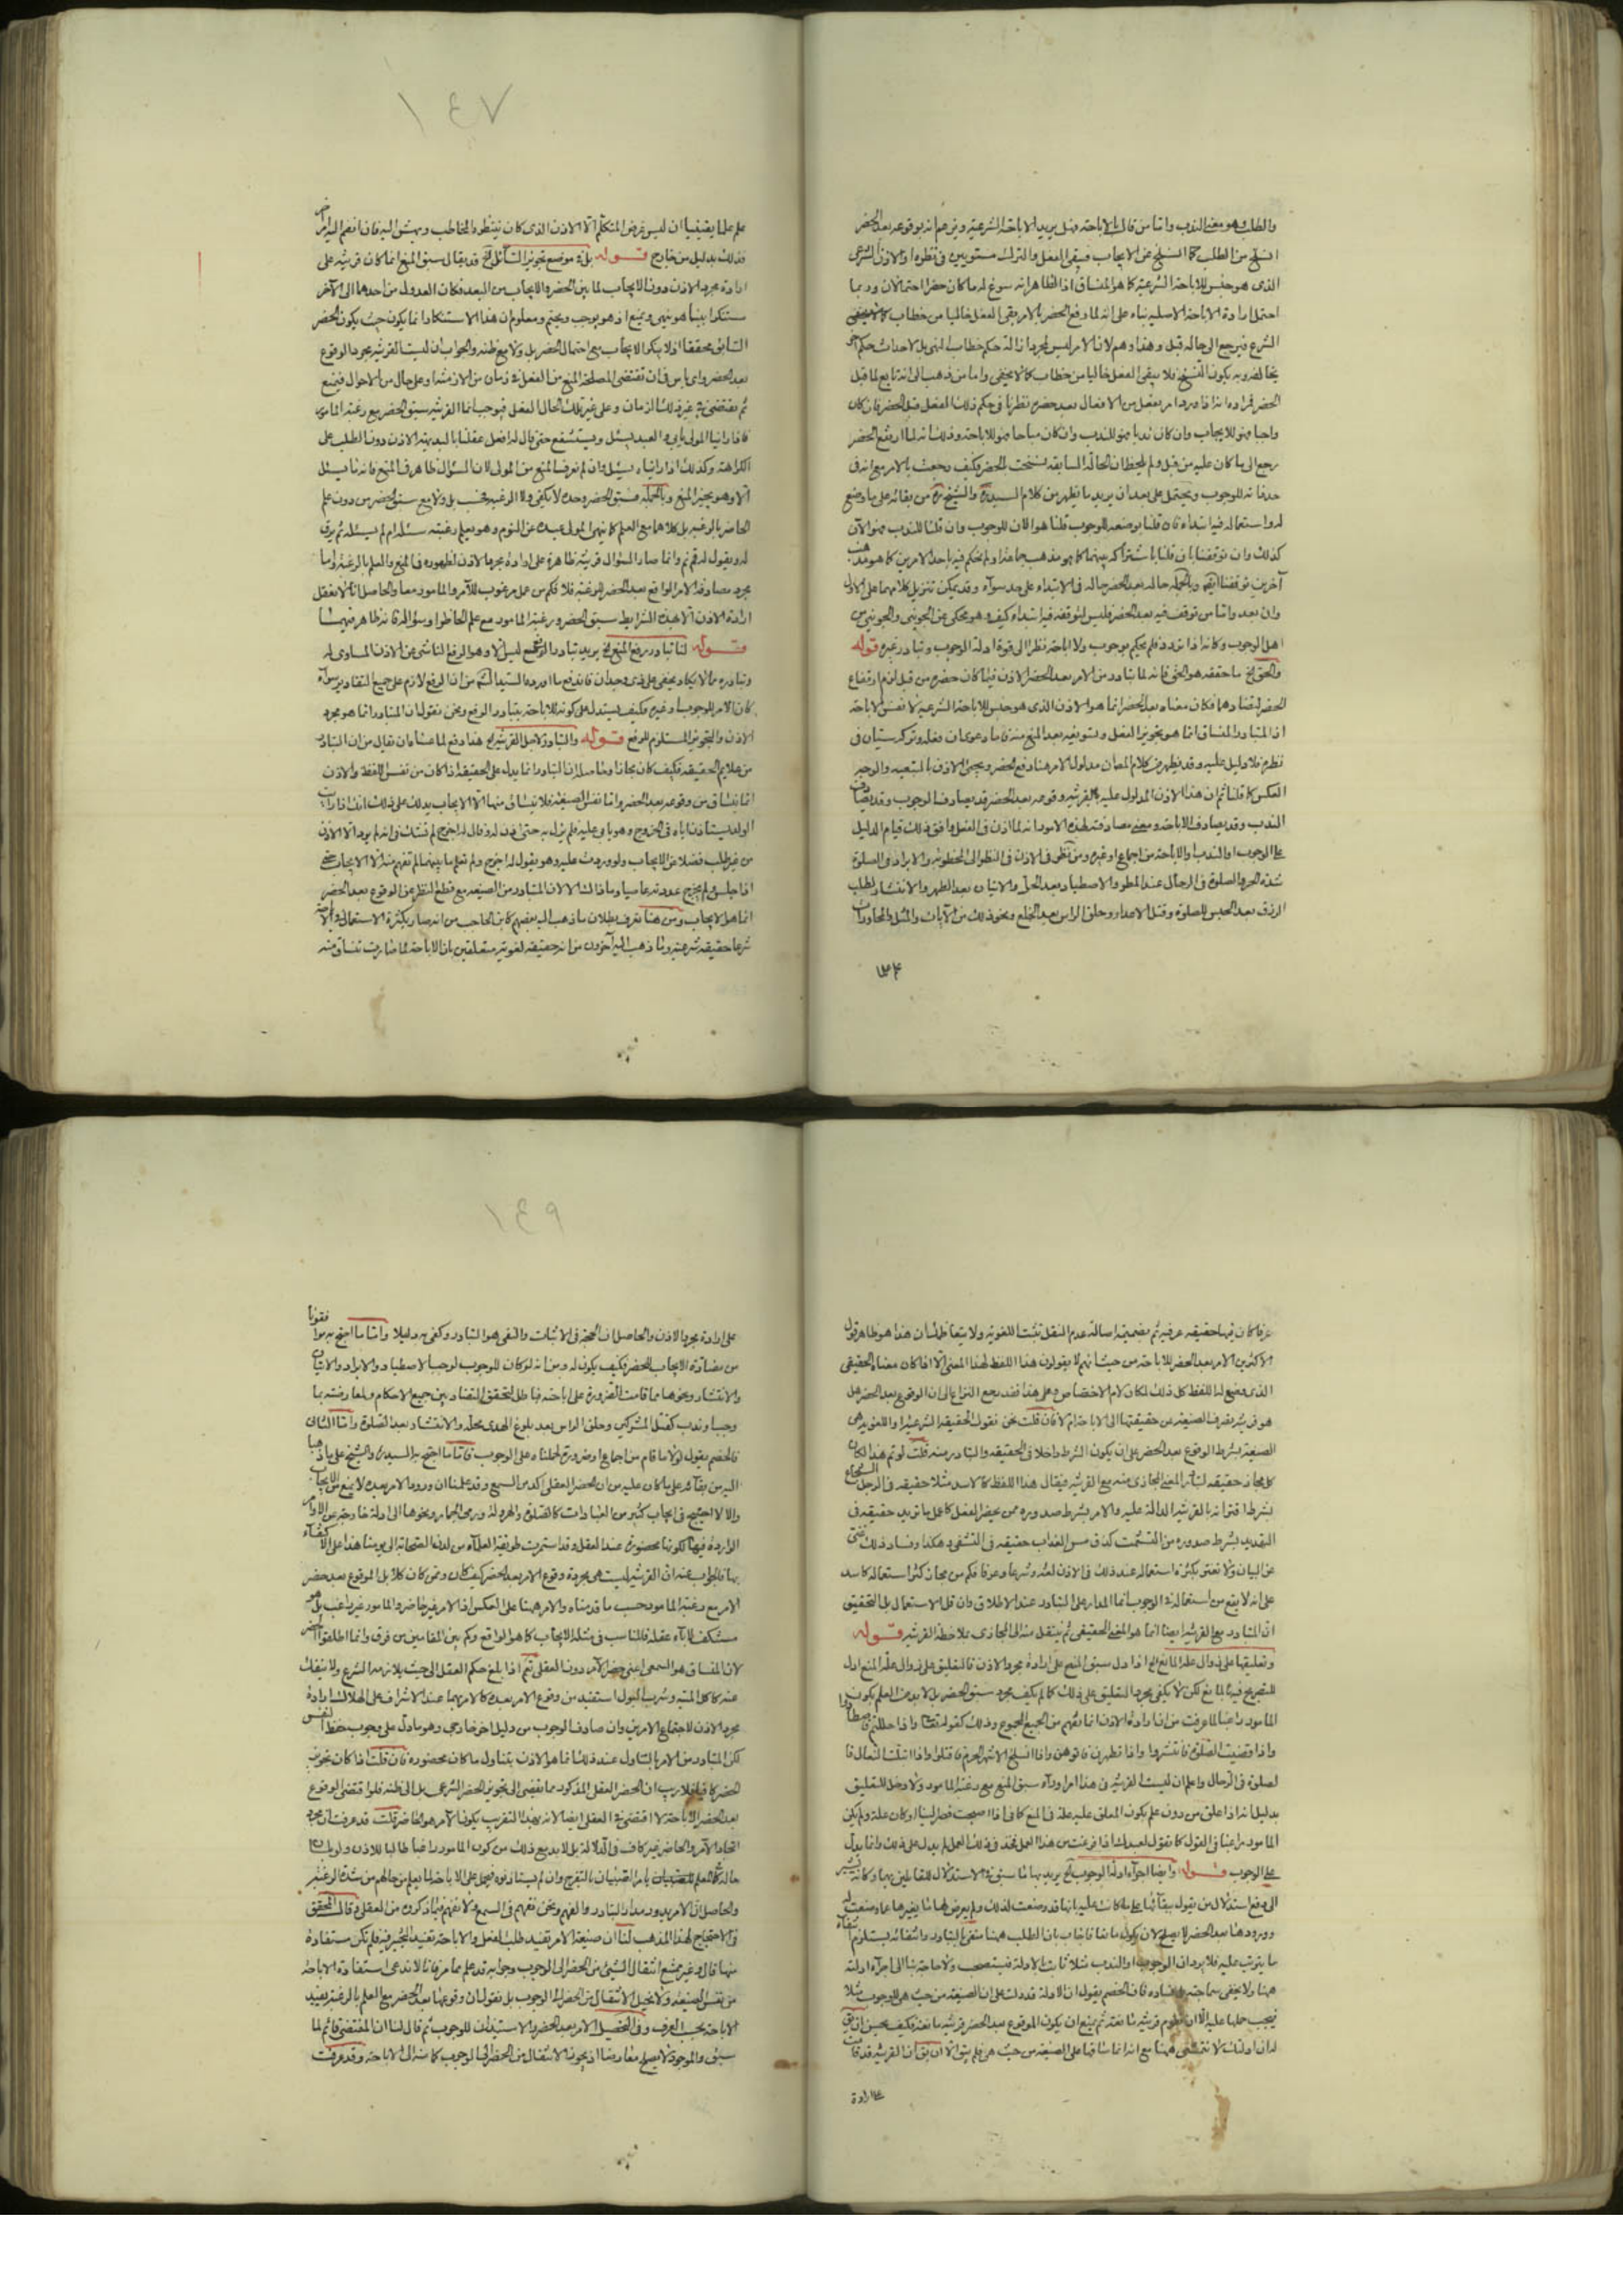 ١٤٧
والطلب وهو معنى الندب واما من قال بالاباحة فهل يريد الاباحة الشرعية ويزعم انه بوقوعه بعد الحضر
انسلخ من الطلب كما انسلخ عن الايجاب فيبقى الفعل والترك مستويين في نظره او الاذن الشرعى
الذى هو جنس للاباحة الشرعية كا هو المنساق اذ الظاهر انه سوغ له ما كان حضرا احتمالان وربما
احتمل ارادة الاباحة الاصلية بناء على انه لما رفع الحضر بالامر بقى الفعل خاليا من خطاب
الشرع فيرجع الى حاله قبل وهذا وهم لان الامر ليس لمجرد ازالة حكم خطاب النهى بل لاحداث حكم آخر
يخالفه وبه يكون النسخ فلا يبقى الفعل خاليا من خطاب كا لا يخفى واما من ذهب الى انه تابع لما قبل
الحضر فمراده انه اذا ورد امر بفعل من الافعال بعد حضره نظرنا في حكم ذلك الفعل قبل الحضر فان كان
واجبا فهو للايجاب وان كان ندبا فهو للندب وان كان مباحا فهو للاباحة وذلك انه لما ارتفع الحضر
رجع الى ما كان عليه من قبل ولم يلحظ ان الحالة السابقة نسخت بالحضر فكيف رجعت بالامر مع انه في
حد ذاته للوجوب ويحتمل على بعد ان يريد ما يظهر من كلام السيدره والشيخ ره من بقائه على ما وضع
له واستعماله فيه ابتداء فان قلنا بوضعه للوجوب قلنا هو الان للوجوب وان قلنا للندب فهو الآن
كذلك وان توقفنا بان قلنا باشتراكه بينهما كا هو مذهب جماعة او لم نحكم فيه باحد الامرين كا هو مذهب
آخرين توقفنا ايضا وبالجملة حاله بعد الحضر حاله في الابتداء على حد سوآء وقد يمكن تنزيل كلامهما على الاول
وان بعد واما من توقف فيه بعد الحضر فليس لتوقفه فيه ابتداء كيف وهو محكى عن الجوينى والجوينى من
اهل الوجوب وكانه اذا تردد فلم يحكم بوجوب ولا اباحة نظرا الى قوة ادلة الوجوب وتبادر غيره قوله
والحق الخ ما حققه هو الحق فانه لما تبادر من الامر بعد الحضر الاذن فيما كان حضره من قبل لزم ارتفاع
الحضر لتضادهما فكان معناه بعد الحضر انما هو الاذن الذى هو جنس للاباحة الشرعية لا نفس الاباحة
اذ المتبادر المنساق انما هو تجويز الفعل وتسويغه بعد المنع منه فاما دعوى ان فعله وتركه سيّان في
نظره فلا دليل عليه وقد يظهر من كلام المص ان مدلول الامر هنا رفع الحضر ويجئ الاذن بالتبعية والوجه
العكس كا قلنا ثم ان هذا الاذن المدلول عليه بالقرينة وقوعه بعد الحضر قد يصادف الوجوب وقد يصادف
الندب وقد يصادف الاباحة ومعنى مصادفته لهذه الامور انه لما اذن في الفعل وافق ذلك قيام الدليل
على الوجوب او الندب او الاباحة من اجماع او غيره ومن نظر في الاذن في النظر الى المخطوبة والايراد في الصلوة
شدة الحر والصلوة في الرحال عند المطر والاصطياد بعد الحل والاتيان بعد الطهر والانتشار لطلب
الرزق بعد الحبس للصلوة وقتل الاصداء وحلق الراس بعد الخلع ونحو ذلك من الآيات والمثل والمحاورات
علم علما يقينيا ان ليس غرض المتكلم الا الاذن الذى كان ينتظره المخاطب ويهش اليه فان انضم اليه امر آخر
فذلك بدليل من خارج قوله بل في موضع تجويز السائل الخ قد يقال سبق المنع انما كان قرينة على
ارادة مجرد الاذن دون الايجاب لما بين الحضر والايجاب من البعد فكان العدول من احدهما الى الآخر
مستنكرا بينا هو ينهى ويمنع اذ هو يوجب ويحتم ومعلوم ان هذا الاستنكار انما يكون حيث يكون الحضر
السابق محققا اذ لا ينكر الايجاب مع احتمال الحضر بل ولا مع ظنه والجواب ان ليست القرينة مجرد الوقوع
بعد الحضر واى باس في ان تقتضى المصلحة المنع من الفعل في زمان من الازمنة او على حال من الاحوال فيمنع
ثم يقتضى في غير ذلك الزمان وعلى غير تلك الحال الفعل فيوجب انما القرينة سبق الحضر مع رغبة المامور
فاذا راينا المولى يابى والعبد يسئل ويستشفع حتى قال له افعل عقلنا بالبديهة الاذن دون الطلب على
الكراهة وكذلك اذا راينا يسئل وان لم نعرف المنع من المولى لان السؤال ظاهر في المنع فانه انما يسئل
الا وهو يحيز المنع وبالجملة فسبق الحضر وحده لا يكفى ولا الرغبة فحسب بل ولا مع سبق الحضر من دون علم
الحاضر بالرغبة بل كلاهما مع العلم كا ينهى المولى عبده عن النوم وهو يعلم رغبته سئله ام لم يسئله ثم يرق
له ويقول له قم نم وانما صار السؤال قرينة ظاهرة على ارادة مجرد الاذن لظهوره في المنع والعلم بالرغبة واما
مجرد مصادفة الامر الواقع بعد الحضر الرغبة فلا فكم من عمل مرغوب للآمر والمامور معا والحاصل انا لا نعقل
ارادة الاذن الا بهذه الشرايط سبق الحضر ورغبة المامور مع علم الحاظر او سؤاله فانه ظاهر فيهما
قوله لنا تبادر رفع المنع الخ يريد تبادر الرفع مع ليس الا وهو الرفع الناشى عن الاذن المساوى له
وتبادره مما لا يكاد يخفى على ذى وجدان فاندفع ما اورده السيد السند من ان الرفع لازم على جميع التقادير سوآء
كان الامر للوجوب او غيره فكيف يستدل على كونه للاباحة بتبادر الرفع ونحن نقول ان المتبادر انما هو مجرد
الاذن والتجويز المستلزم للرفع قوله والتبادر لاجل القرينة الخ هذا دفع لما عساه ان يقال من ان التبادر
من علايم الحقيقة فكيف كان مجازا وحاصله ان التبادر انما يدل على الحقيقة اذا كان من نفس اللفظ والاذن
انما ينساق من وقوعه بعد الحضر واما نفس الصيغة فلا ينساق منها الا الايجاب يدلك على ذلك انك اذا رايت
الولد يستاذن اباه في الخروج وهو يابى عليه فلم يزل به حتى اذن له وقال له اخرج لم تشك في انه لم يرد الا الاذن
من غير طلب فضلا عن الايجاب ولو وردت عليه وهو يقول له اخرج ولم تعلم ما بينهما لم تفهم منه الا الايجاب حتى
اذا جلس ولم يخرج عددته عاصيا وما ذاك الا لان المتبادر من الصيغة مع قطع النظر عن الوقوع بعد الحضر
انما هو الايجاب ومن هنا تعرف بطلان ما ذهب اليه بعضهم كابن الحاجب من انه صار بكثرة الاستعمال في الاباحة
شرعا حقيقة شرعية وما ذهب اليه آخرون من انه حقيقة لغوية متعلقين بان الاباحة لما صارت تنساق منه
١٤٩
عرفا كان فيها حقيقة عرفية ثم بضميمة اصالة عدم النقل تثبت اللغوية ولا يتعاظمك ان هذا هو ظاهر قول
الاكثرين الامر بعد الحضر للاباحة من حيث انهم لا يقولون هذا اللفظ لهذا المعنى الا اذا كان معناه الحقيقى
الذى وضع له اللفظ كل ذلك لمكان لام الاختصاص وعلى هذا فقد يرجع النزاع الى ان الوقوع بعد الحضر هل
هو قرينة صرف الصيغة عن حقيقتها الى الاباحة ام لا فان قلت نحن نقول الحقيقة الشرعية او اللغوية هى
الصيغة بشرط الوقوع بعد الحضر على ان يكون الشرط داخلا في الحقيقة والتبادر منه قلت لو تم هذا لكان
كل مجاز حقيقة لتبادر المعنى المجازى منه مع القرينة فيقال هذا اللفظ كالاسد مثلا حقيقة في الرجل الشجاع
بشرط اقترانه بالقرينة الدالة عليه والامر بشرط صدوره ممن يحضر الفعل كاعمل ما تريد حقيقة في
التهديد بشرط صدوره من الشمت كذق مس العذاب حقيقة في التشفى وهكذا وفساد ذلك غنى
عن البيان ولا تغتر بكثرة استعماله عند ذلك في الاذن لغة وشرعا وعرفا فكم من مجاز كثر استعماله كاسد
على انه لا يمنع من استعماله في الوجوب انما المدار على التبادر عند الاطلاق وان قل الاستعمال بل التحقيق
ان المتبادر مع القرينة ايضا انما هو المعنى الحقيقى ثم ينتقل منه الى المجازى بملاحظة القرينة قوله
وتعليقها على زوال علة المانع الخ اذا دل سبق المنع على ارادة مجرد الاذن فالتعليق على زوال علة المنع ادل
للتصريح فيه بالمانع لكن لا يكفى مجرد التعليق على ذلك كا لم يكف مجرد سبق الحضر بل لا بد من العلم بكون
المامور راغبا لما عرفت من ان ارادة الاذن انما تفهم من الجميع المجموع وذلك كقوله تعالى واذا حللتم فاصطادوا
واذا قضيت الصلوة فانتشروا واذا تطهرن فاتوهن واذا انسلخ الاشهر الحرم فاقتلوا واذا ابتلت النعال فا
لصلوة في الرحال واعلم ان ليست القرينة في هذا امرا ورآء سبق المنع مع رغبة المامور ولا دخل للتعليق
بدليل انه اذا علق من دون علم بكون المعلق عليه علة في المنع كا في اذا اصبحت فصر الينا او كان علة ولم يكن
المامور راغبا في القول كا تقول لعبدك اذا فرغت من هذا العمل فخذ في ذلك العمل لم يدل على ذلك وانما يدل
على الوجوب قوله وايضا اجرآء ادلة الوجوب الخ يريد بها ما سبق في الاستدلال للقائلين بها وكانه يشير
الى دفع استدلال من يقول ببقائها على ما كانت عليه بانها قد وضعت لذلك ولم يعرض لها ما يغيرها عما وضعت له
وورودها بعد الحضر لا يصلح لان يكون مانعا فاجاب بان الطلب ههنا منفى بالتبادر وانتفائه يستلزم انتفاء
ما يترتب عليه فلا يرد ان الوجوب او الندب مثلا ثابت بالادلة فيستصحب ولا حاجة بنا الى اجرآء ادلته
ههنا ولا يخفى سماجته وفساده فان الخصم يقول ان الادلة قد دلت على ان الصيغة من حيث هى للوجوب مثلا
فيجب حملها عليه الا ان تقوم قرينة مانعة ثم يمنع ان يكون الوقوع بعد الحضر قرينة مانعة فكيف يحسن ان يق
له ان ادلتك لا تتمشى ههنا مع انه انما ساقها على الصيغة من حيث هى فلم يبق الا ان يق ان القرينة قد قامت
على ارادة
على ارادة مجرد الاذن والحاصل ان الحجة في الاثبات والنفى هو التبادر وكفى به دليلا واما ما احتج به فقولنا
من مضادة الايجاب للحضر فكيف يكون له ومن انه لو كان للوجوب لوجب الاصطياد والايراد والاتيان
والانتشار ونحوها مما قامت الضرورة على اباحته فباطل لتحقق التضاد بين جميع الاحكام ولمعارضته بما
وجب وندب كقتل المشركين وحلق الراس بعد بلوغ الهدى محله والانتشار بعد الصلوة واما الثانى
فالخصم يقول لولا ما قام من اجماع او ضرورة لحملناه على الوجوب فاما ما احتج به السيدره والشيخ على ما ذهبا
اليه من بقائه على ما كان عليه من ان الحضر العقلى اكد من السمعى وقد علمنا ان ورود الامر بعده لا يمنع من الايجاب
والا لا احتيج في ايجاب كثير من العبادات كالصلوة والهرولة ورمى الجمار ونحوها الى ادلة خارجة عن الاوامر
الواردة فيها لكونها محضورة عند العقل وقد استمرت طريقة العلمآء من لدن الصحابة الى يومنا هذا على الاكتفآء
بها فالجواب عنه ان القرينة ليست هى مجرد وقوع الامر بعد الحضر كيف كان ومن كان كلا بل الوقوع بعد حضر
الامر مع رغبة المامور حسب ما قدمناه والامر ههنا على العكس اذ الامر غير حاضر والمامور غير راغب بل هو
مستنكف لاباه عقله فالمناسب في مثله الايجاب كا هو الواقع وكم بين المقامين من فرق وانما اطلقوا الحضر
لان المنساق هو السمعى اعنى حضر الآمر دون العقلى نعم اذا بلغ حكم العقل الى حيث يلازمه الشرع ولا ينفك
عنه كاكل الميتة وشرب البول استفيد من وقوع الامر بعده كالامر بهما عند الاشراف على الهلاك ارادة
مجرد الاذن لاجتماع الامرين وان صادف الوجوب من دليل اخر خارجى وهو ما دل على وجوب حفظ النفس
لكن المتبادر من الامر بالتناول عند ذلك انما هو الاذن بتناول ما كان محضوره فان قلت اذا كان تجويز
الحضر كافيا فلا ريب ان الحضر العقل المذكور مما يفضى الى تجويز الحضر الشرعى بل الى ظنه فلو اقتضى الوقوع
بعد الحضر الاباحة لاقتضى في العقلى ايضا لانه بهذا التقريب يكون الآمر هو الحاضر قلت قد عرفت ان مجرد
اتحاد الآمر والحاضر غير كاف في الدلالة بل لا بد مع ذلك من كون المامور راغبا طالبا للاذن ولو بلسان
حاله كالمعلم للصبيان يامر الصبيان بالتفرج وان لم يستاذنوه فيحمل على الاباحة لما يعلم من حالهم من شدة الرغبة
والحاصل ان الامر يدور مدار التبادر والفهم ونحن نفهم في السمع ولا نفهم فيما ذكروه من العقل وقال المحقق
في الاحتجاج لهذا المذهب لنا ان صيغة الامر تفيد طلب الفعل والاباحة تفيد التخيير فيه فلم تكن مستفادة
منها قال وغير ممتنع انتقال الشئ من الحضر الى الوجوب وجوابه قد علم مما مر فانا لا ندعى استفادة الاباحة
من نفس الصيغة ولا نحيل الانتقال من الحضر الى الوجوب بل نقول ان وقوعها بعد الحضر مع العلم بالرغبة يفيد
الاباحة بحسب العرف وفى المحصول الامر بعد الحضر والاستيذان للوجوب ثم قال لنا ان المقتضى قائم لما
سبق والموجود لا يصلح معارضا اذ يجوز الانتقال من الحضر الى الوجوب كا منه الى الاباحة وقد عرفت